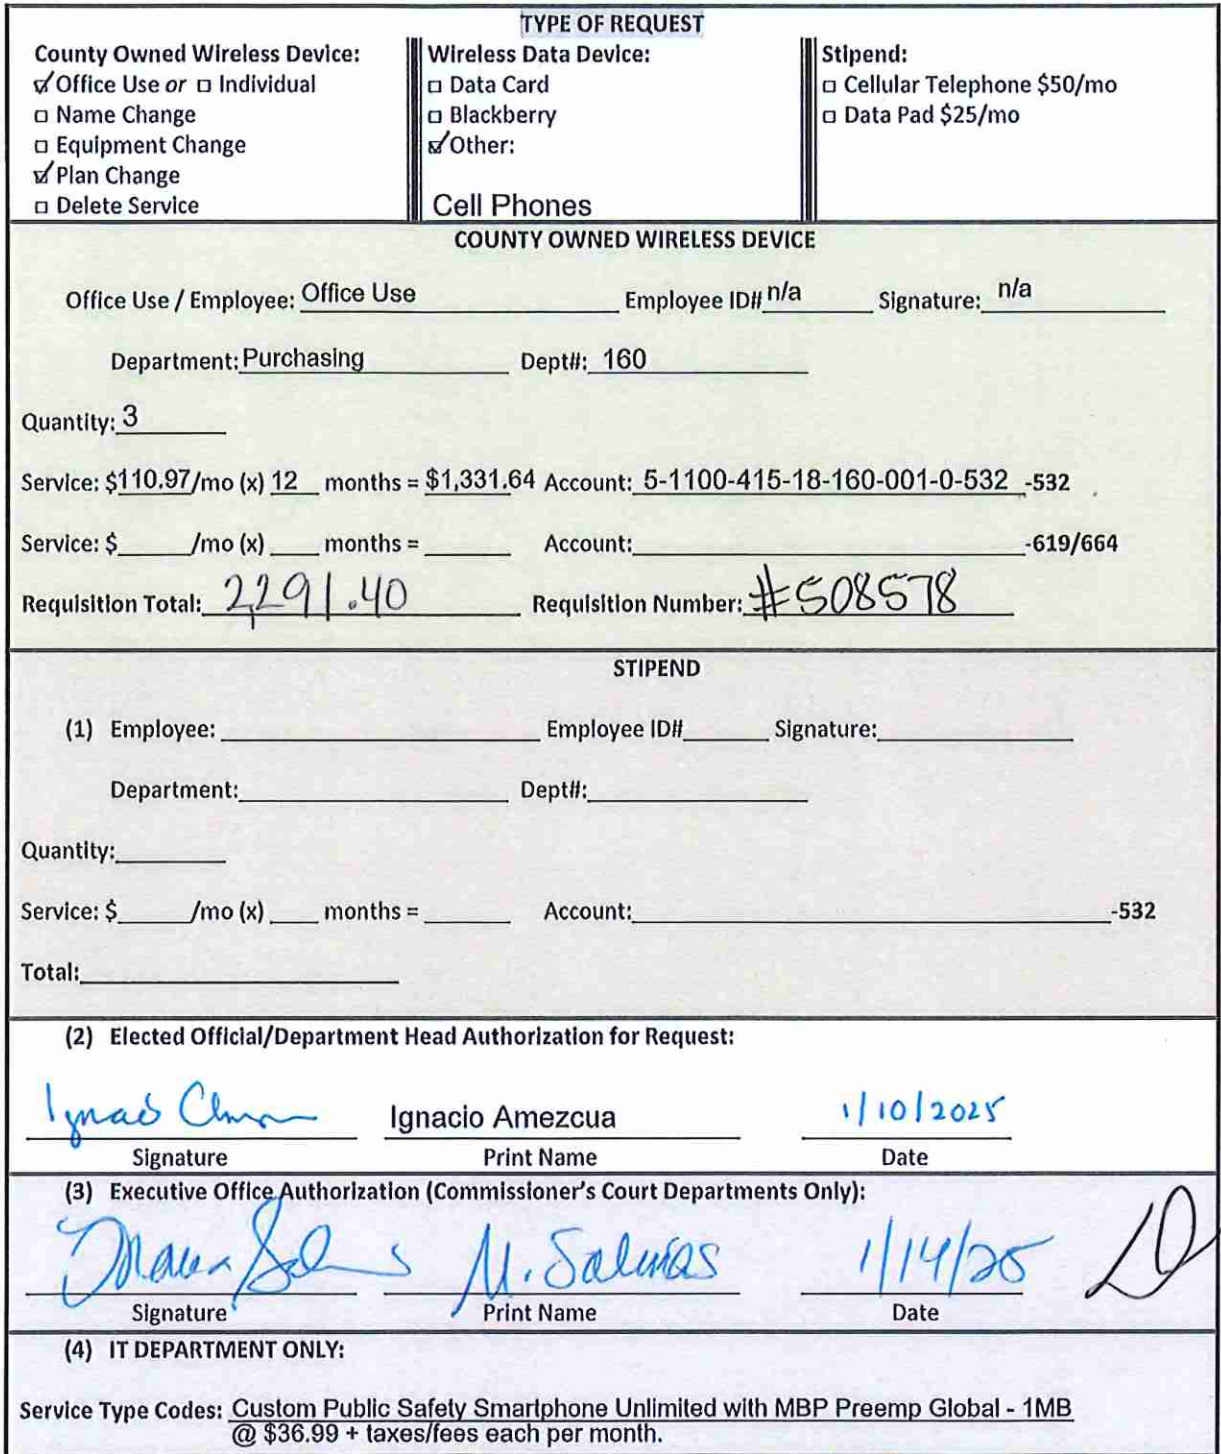 TYPE OF REQUEST
County Owned Wireless Device:
☑ Office Use or □ Individual
□ Name Change
□ Equipment Change
☑ Plan Change
□ Delete Service
Wireless Data Device:
□ Data Card
□ Blackberry
☑ Other:
Cell Phones
Stipend:
□ Cellular Telephone $50/mo
□ Data Pad $25/mo
COUNTY OWNED WIRELESS DEVICE
Office Use / Employee: Office Use Employee ID# n/a Signature: n/a
Department: Purchasing Dept#: 160
Quantity: 3
Service: $110.97/mo (x) 12 months = $1,331.64 Account: 5-1100-415-18-160-001-0-532 -532
Service: $______/mo (x) ____ months = ______ Account: ______ -619/664
Requisition Total: 2,291.40 Requisition Number: #508578
STIPEND
(1) Employee: ______ Employee ID#______ Signature:______
Department:______ Dept#:______
Quantity:______
Service: $______/mo (x) ____ months = ______ Account:______-532
Total:______
(2) Elected Official/Department Head Authorization for Request:
Ignacio Amezcua 1/10/2025
Signature Print Name Date
(3) Executive Office Authorization (Commissioner's Court Departments Only):
M. Salinas 1/14/25
Signature Print Name Date
(4) IT DEPARTMENT ONLY:
Service Type Codes: Custom Public Safety Smartphone Unlimited with MBP Preemp Global - 1MB
@ $36.99 + taxes/fees each per month.